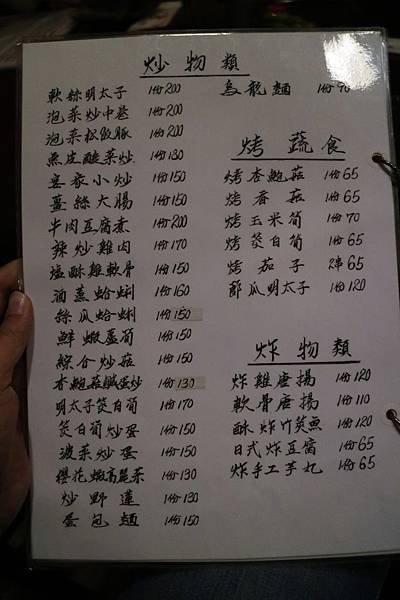 炒物類
軟絲明太子 1份200
泡菜炒中卷 1份200
泡菜松阪豚 1份200
皮酸菜炒 1份130
客家小炒 1份150
薑絲大腸 1份150
牛肉豆腐煮 1份200
辣炒雞肉 1份170
塩酥雞軟骨 1份150
酒蒸蛤蜊 1份160
絲瓜蛤蜊 1份150
鮮蝦蘆筍 1份150
綜合炒菇 1份150
杏鮑菇鹹蛋炒 1份130
明太子筊白筍 1份170
筊白筍炒蛋 1份150
菠菜炒蛋 1份150
櫻花蝦高麗菜 1份130
炒野蓮 1份130
蛋包麵 1份150
烏龍麵 1份90
烤蔬食
烤杏鮑菇 1份65
烤香菇 1份65
烤玉米筍 1份70
烤筊白筍 1份65
烤茄子 2串65
節瓜明太子 1份120
炸物類
炸雞唐揚 1份120
軟骨唐揚 1份110
酥炸竹筴魚 1份120
日式炸豆腐 1份65
炸手工芋丸 1份65